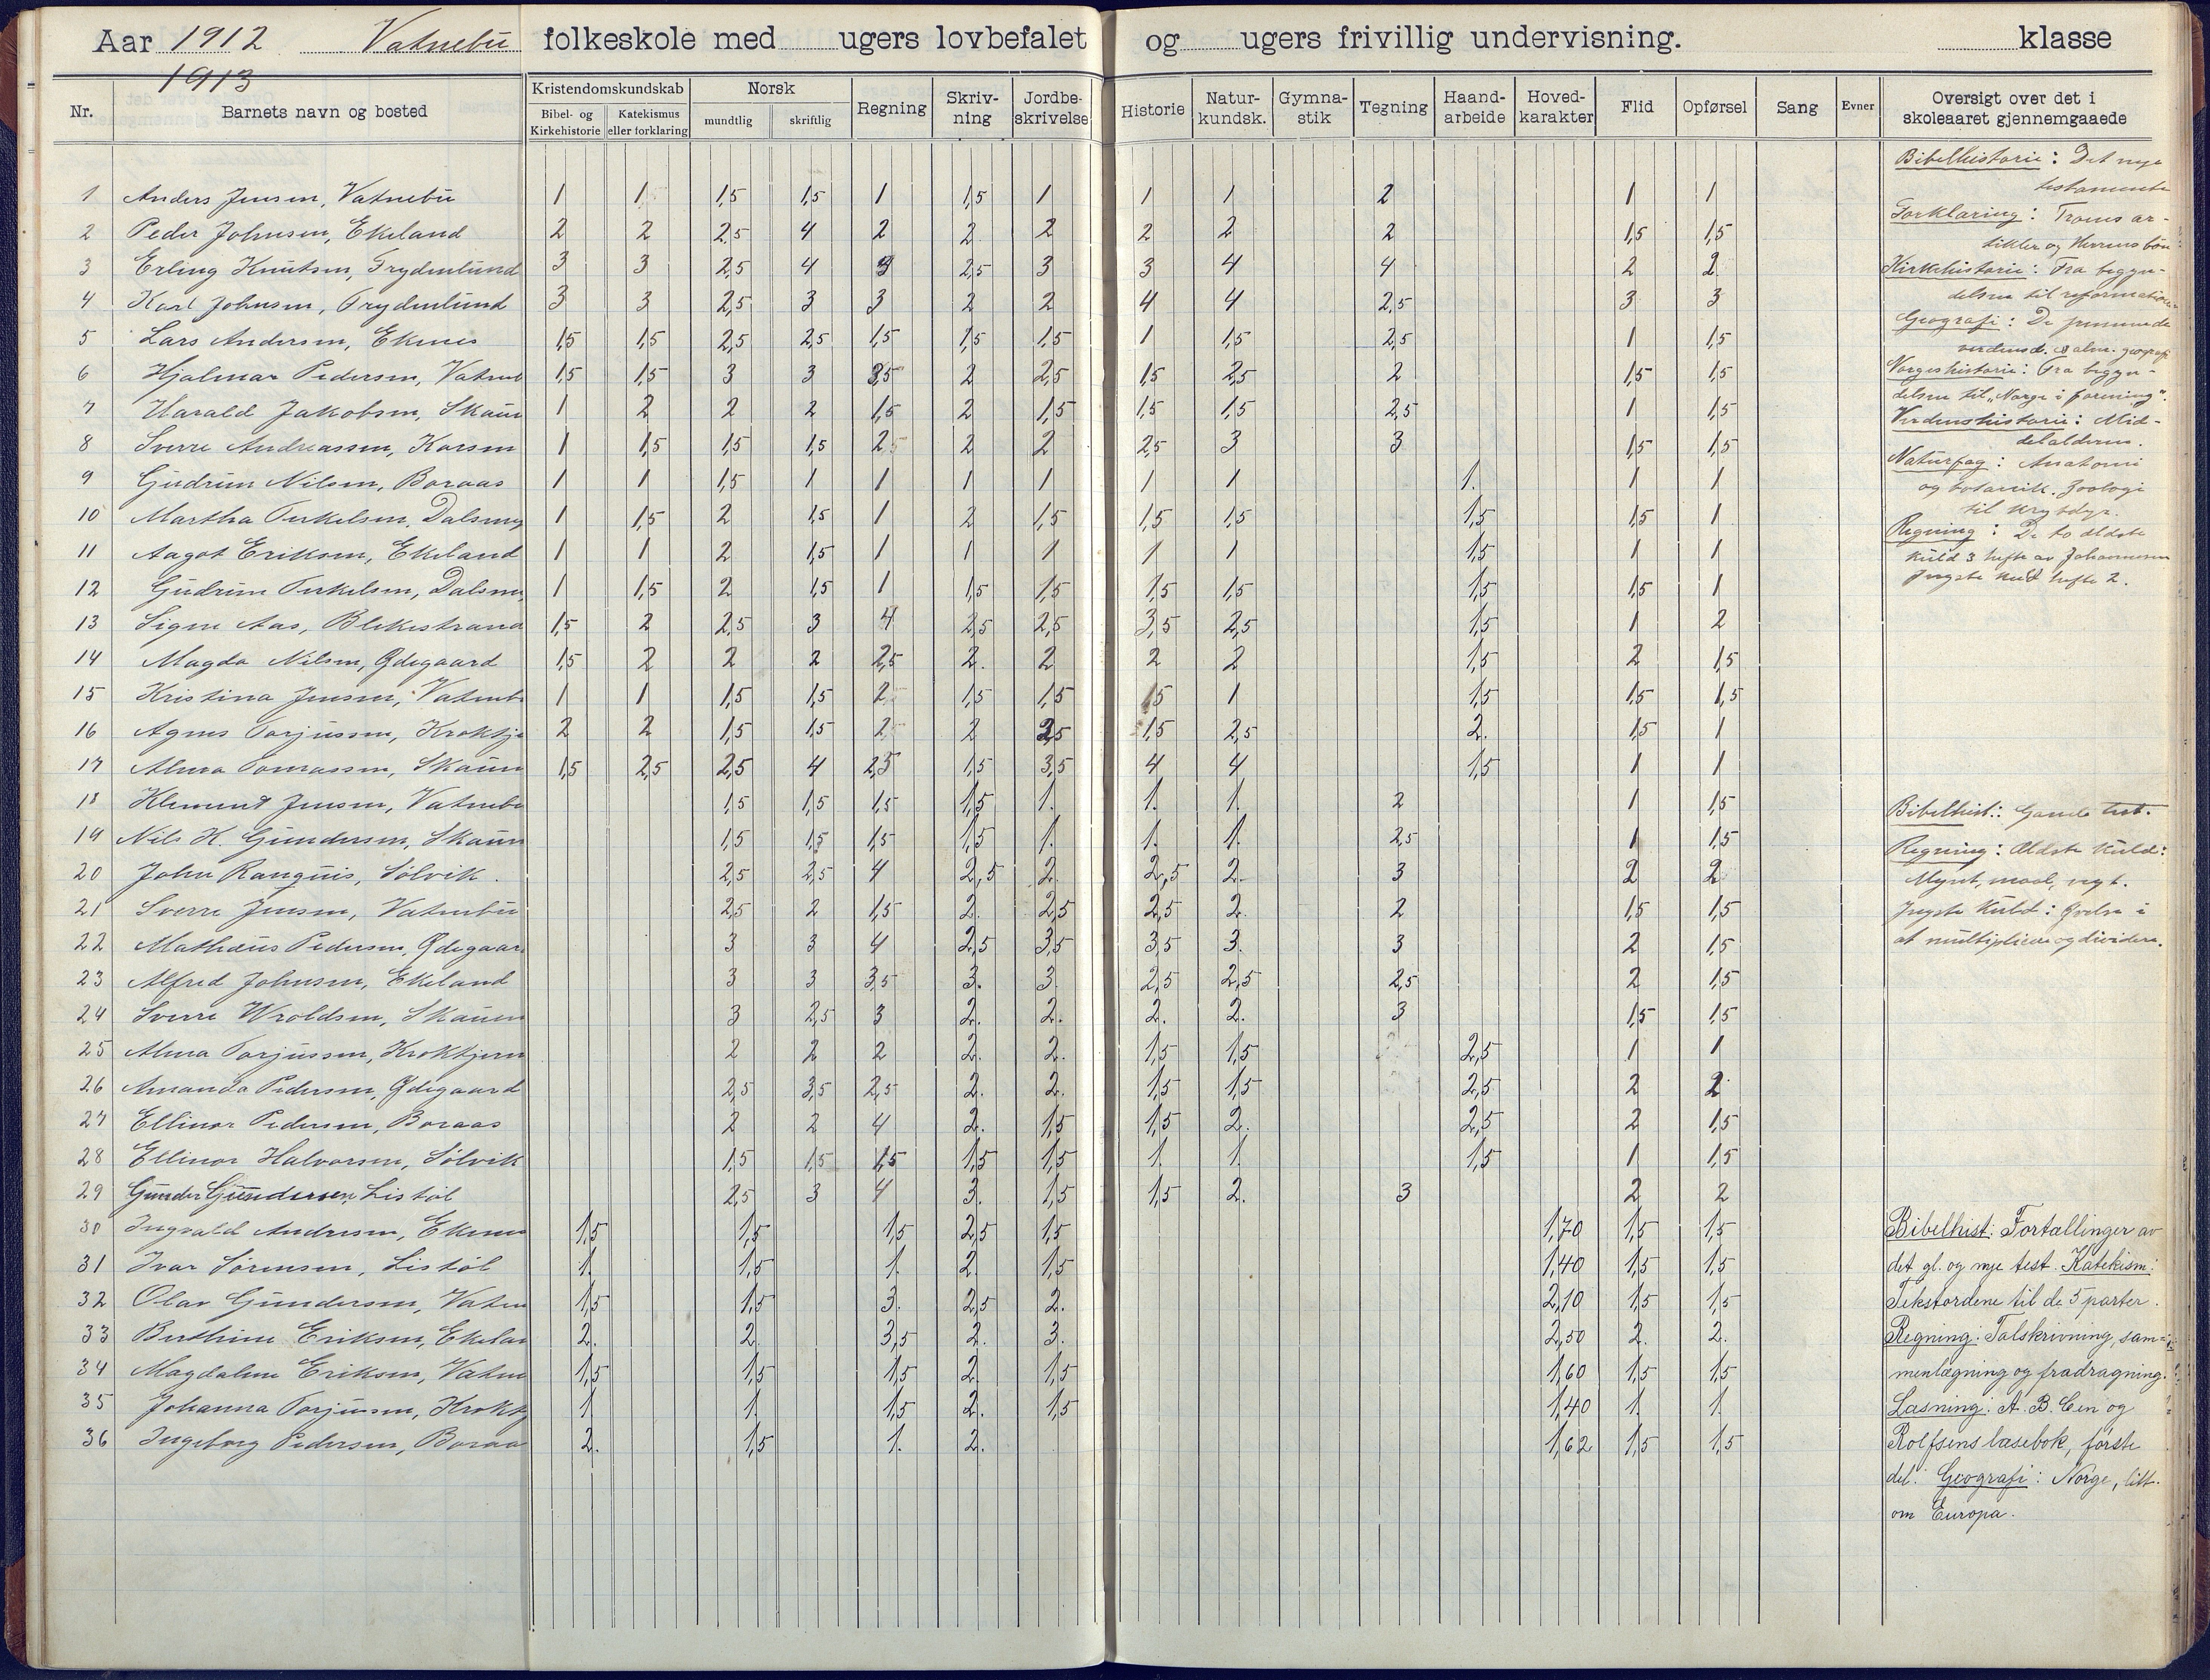 Aar 1912 Vatnebu folkeskole med ugers lovbefalet og ugers frivillig undervisning. klasse
1913
Nr. Barnets navn og bosted Kristendomskundskab Norsk Regning Skriv-ning Jordbe-skrivelse Historie Natur-kundsk. Gymna-stik Tegning Haand-arbeide Hoved-karakter Flid Opførsel Sang Evner Oversigt over det i skoleaaret gjennemgaaede
Bibel- og Kirkehistorie Katekismus eller forklaring mundtlig skriftlig
1 Anders Jensen, Vatnebu 1 1 1,5 1,5 1 1,5 1 1 1 2 1 1
2 Peder Johnsen, Ekeland 2 2 2,5 4 2 2 2 2 2 2 1,5 1,5
3 Erling Knutsen, Frydenlund 3 3 2,5 4 3 2,5 3 3 4 4 2 2
4 Karl Johnsen, Frydenlund 3 3 2,5 3 3 2 2 4 4 2,5 3 3
5 Lars Andersen, Ekenes 1,5 1,5 2,5 2,5 1,5 1,5 1,5 1 1,5 2,5 1 1,5
6 Hjalmar Pedersen, Vatneb 1,5 1,5 3 3 3,5 2 2,5 1,5 2,5 2 1,5 1,5
7 Harald Jakobsen, Skaun 1 2 2 2 1,5 2 1,5 1,5 1,5 2,5 1 1,5
8 Sverre Andreassen, Korsen 1 1,5 1,5 1,5 2,5 2 2 2,5 3 3 1,5 1,5
9 Gudrun Nilsen, Boraas 1 1 1,5 1 1 1 1 1 1 1. 1 1
10 Martha Terkelsen, Dalsmy 1 1,5 2 1,5 1 2 1,5 1,5 1,5 1,5 1,5 1
11 Aagot Eriksen, Ekeland 1 1 2 1,5 1 1 1 1 1 1,5 1 1
12 Gudrun Terkelsen, Dalsm 1 1,5 2 1,5 1 1,5 1,5 1,5 1,5 1,5 1,5 1
13 Signe Aas, Blekestrand 1,5 2 2,5 3 4 2,5 2,5 3,5 2,5 1,5 1 2
14 Magda Nilsen, Ødegaard 1,5 2 2 2 2,5 2. 2 2 2 1,5 2 1,5
15 Kristina Jensen, Vatneb 1 1 1,5 1,5 2 1,5 1,5 1,5 1 1,5 1,5 1,5
16 Agnes Torjussen, Kroktje 2 2 1,5 1,5 2 2 2,5 1,5 2,5 2. 1,5 1
17 Alma Tomassen, Skaun 1,5 2,5 2,5 4 2,5 1,5 3,5 4 4 1,5 1 1
18 Klement Jensen, Vatnebu 1,5 1,5 1,5 1,5 1. 1. 1. 2 1 1,5
19 Nils K. Gundersen, Skaun 1,5 1,5 1,5 1,5 1. 1. 1. 2,5 1 1,5
20 John Ranquis, Sølvik. 2,5 2,5 4 2,5 2. 2,5 2. 3 2 2
21 Sverre Jensen, Vatnebu 2,5 2 1,5 2. 2,5 2,5 2. 2 1,5 1,5
22 Mathæus Pedersen, Ødegaar 3 3 4 2,5 3,5 3,5 3. 3 2 1,5
23 Alfred Johnsen, Ekeland 3 3 3,5 3. 3 2,5 2,5 2,5 2 1,5
24 Sverre Wroldsen, Skauen 3 2,5 3 2. 2. 2. 2. 3 1,5 1,5
25 Alma Torjussen, Kroktjern 2 2 2 2. 2. 1,5 1,5 2,5 1 1
26 Amanda Pedersen, Ødegaard 2,5 3,5 2,5 2. 2. 1,5 1,5 2,5 2 2
27 Ellinor Pedersen, Boraas 2 2 4 2. 1,5 1,5 2. 2,5 2 1,5
28 Ellinor Halvorsen, Sølvik 1,5 1,5 1,5 1,5 1,5 1. 1. 1,5 1 1,5
29 Gunder Gundersen, Listøl 2,5 3 4 3. 1,5 1,5 2. 3 2 2
30 Ingvald Andersen, Ekenes 1,5 1,5 1,5 2,5 1,5 1,70 1,5 1,5
31 Ivar Sørensen, Listøl 1. 1,5 1. 2. 1,5 1,40 1,5 1,5
32 Olav Gundersen, Vatne 1,5 1,5 3. 2,5 2. 2,10 1,5 1,5
33 Berthine Eriksen, Ekelan 2. 2. 3,5 2. 3. 2,50 2. 2.
34 Magdalene Eriksen, Vatne 1,5 1,5 1,5 2. 1,5 1,60 1,5 1,5
35 Johanna Torjussen, Kroktj 1 1. 1,5 2. 1,5 1,40 1. 1.
36 Ingeborg Pedersen, Boraa 2. 1,5 1. 2. 1,62 1,5 1,5
Bibelhistorie: Det nye
testamente
Forklaring: Troens ar-
tikler og Herrens bøn
Kirkehistorie: Fra begyn-
delsen til reformationen
Geografi: De fremmede
verdensd. & alm. geografi
Norgeshistorie: Fra begyn-
delsen til "Norge i forening".
Verdenshistorie: Mid-
delalderen.
Naturfag: Anatomi
og botanik. Zoologi
til krybdyr.
Regning: De to ældste
kuld 3 hefte av Johannesen
Yngste kuld hefte 2.
Bibelhist.: Gamle test.
Regning: Ældste kuld:
Mynt, maal, vegt.
Yngste kuld: Øvelse i
at multiplicere og dividere.
Bibelhist: Fortællinger av
det gl. og nye test. Katekism:
Tekstordene til de 5 parter.
Regning: Talskrivning, sam-
menlægning og fradragning.
Læsning: A.B.C.en og
Rolfsens læsebok, første
del. Geografi: Norge, litt
om Europa.